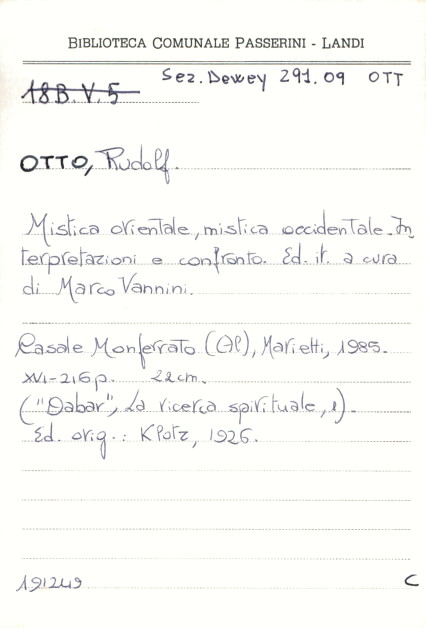 BIBLIOTECA COMUNALE PASSERINI - LANDI
Sez. Dewey 291.09 OTT
18B.V.5
OTTO, Rudolf.
Mistica orientale, mistica occidentale. In
terpretazioni e confronto. Ed. it. a cura
di Marco Vannini.
Casale Monferrato (Al), Marietti, 1985.
XVI-216 p. 22 cm.
("Dabar", La ricerca spirituale, 1).
Ed. orig.: Klotz, 1926.
191249 C